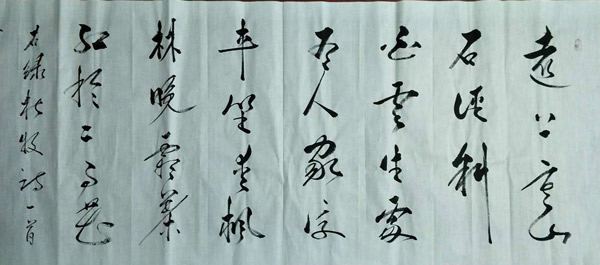 遠上寒山
石徑斜
白雲生處
有人家停
車坐愛楓
林晚霜葉
紅於二月花
右録杜牧詩一首